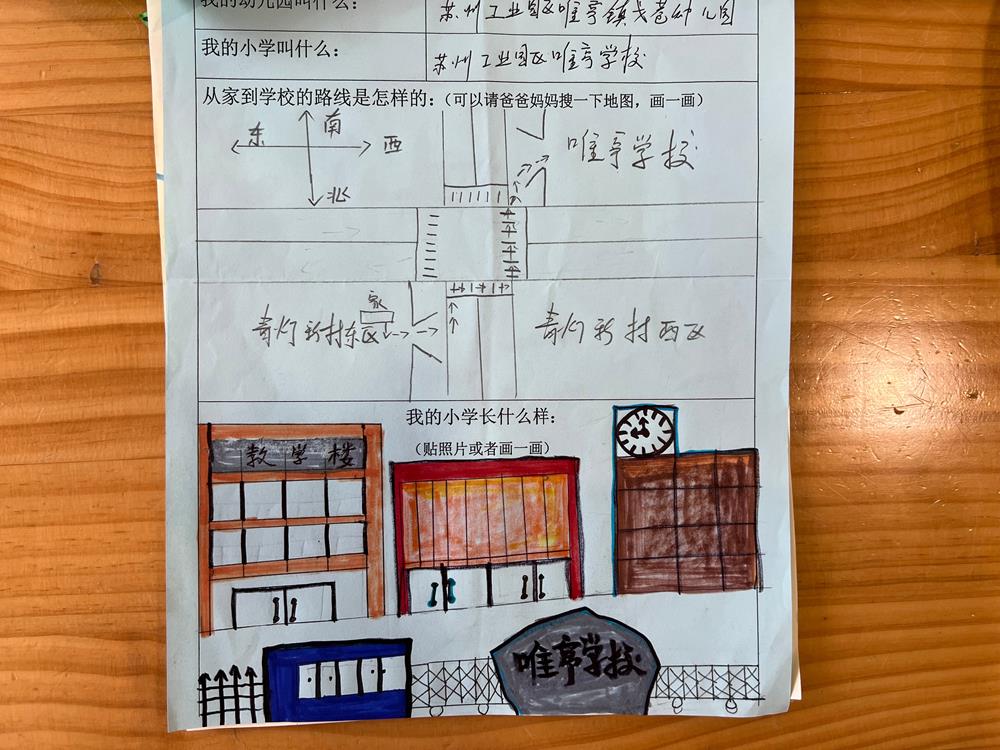 我的幼儿园叫什么：
苏州工业园区唯亭镇戈巷幼儿园
我的小学叫什么：
苏州工业园区唯亭学校
从家到学校的路线是怎样的：（可以请爸爸妈妈搜一下地图，画一画）
南
东 西
北
唯亭学校
家
青灯新村东区
青灯新村西区
我的小学长什么样：
（贴照片或者画一画）
教学楼
唯亭学校